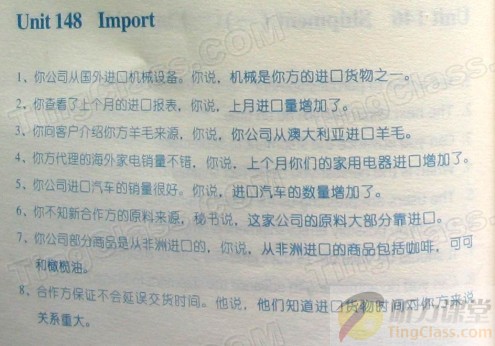 Unit 148 Import
1、你公司从国外进口机械设备。你说，机械是你方的进口货物之一。
2、你查看了上个月的进口报表，你说，上月进口量增加了。
3、你向客户介绍你方羊毛来源，你说，你公司从澳大利亚进口羊毛。
4、你方代理的海外家电销量不错，你说，上个月你们的家用电器进口增加了。
5、你公司进口汽车的销量很好。你说，进口汽车的数量增加了。
6、你不知新合作方的原料来源，秘书说，这家公司的原料大部分靠进口。
7、你公司部分商品是从非洲进口的，你说，从非洲进口的商品包括咖啡，可可
和橄榄油。
8、合作方保证不会延误交货时间。他说，他们知道进口货物时间对你方来说
关系重大。
听力课堂
TingClass.com